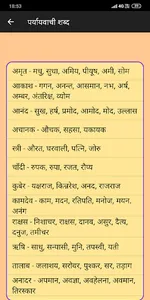 18:53
पर्यायवाची शब्द
अमृत - मधु, सुधा, अमिय, पीयूष, अमी, सोम
आकाश - गगन, अनन्त, आसमान, नभ, अर्श,
अम्बर, अंतरिक्ष, व्योम
आनन्द - सुख, हर्ष, प्रमोद, आमोद, मोद, उल्लास
अचानक - औचक, सहसा, यकायक
स्त्री - औरत, घरवाली, पत्नि, जोरु
चाँदी - रुपक, रुपा, रजत, रौप्य
कुबेर - यक्षराज, किन्नरेश, अनद, राजराज
कामदेव - काम, मदन, रतिपति, मनोज, मयन,
अनंग
राक्षस - निशाचर, राक्षस, दानव, असुर, दैत्य,
दनुज, तमीचर
ऋषि - साधु, सन्यासी, मुनि, तपस्वी, यती
तालाब - जलाशय, सरोवर, पुश्कर, सर, तड़ाग
अनादर - अपमान, अवज्ञा, अवहेलना, अवमानना,
तिरस्कार